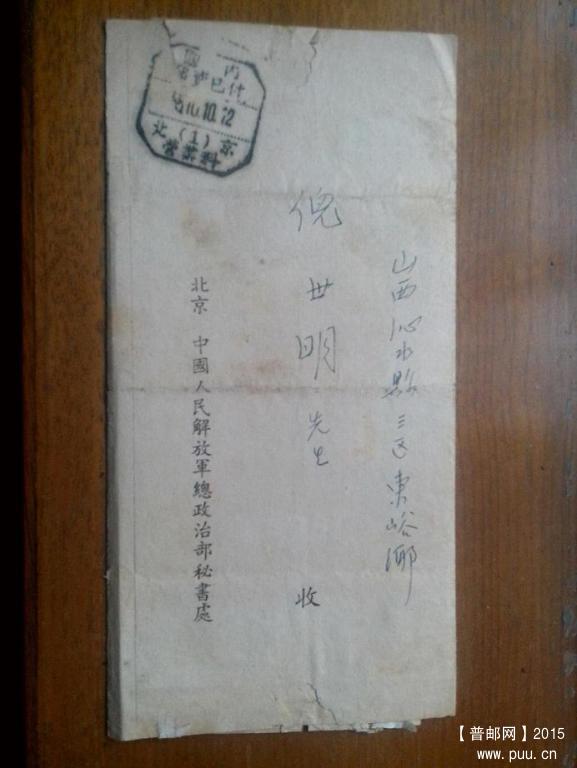 國 内
郵資已付
10.12
北(1)京
營業科
山西沁水縣三区東峪鄉
倪世明先生 收
北京 中國人民解放軍總政治部秘書處
【普邮网】2015
www.puu.cn